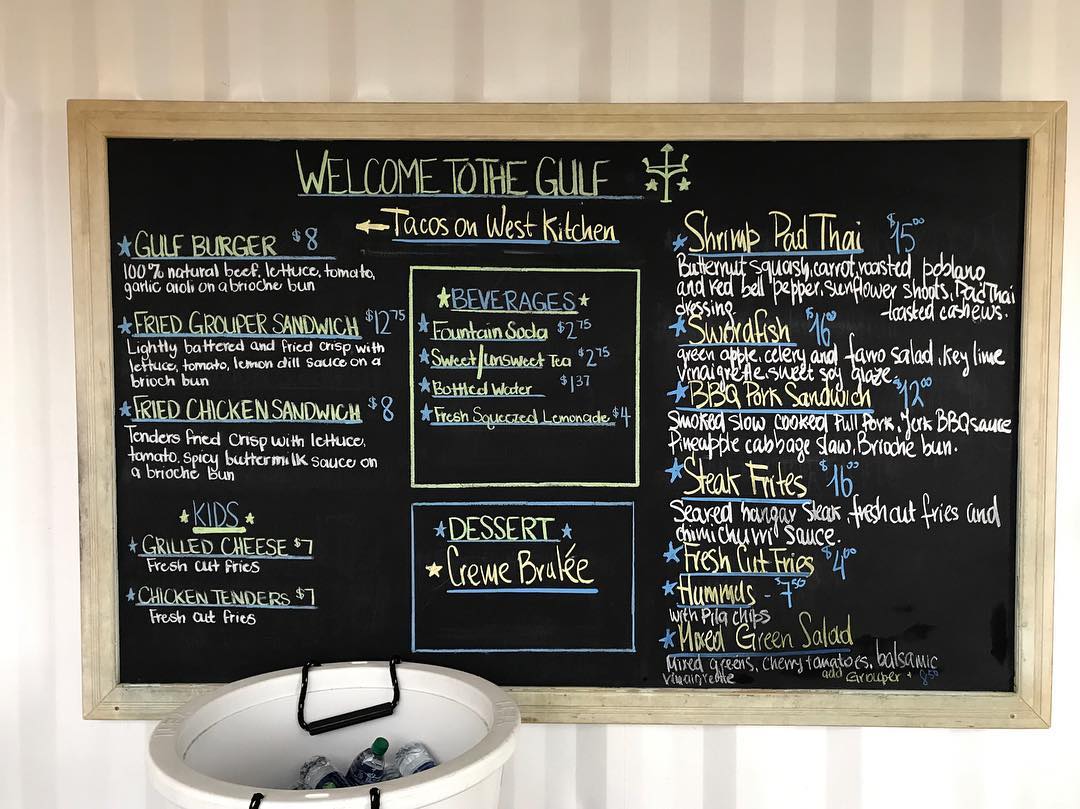 WELCOME TO THE GULF
←Tacos on West Kitchen
★GULF BURGER $8
100% natural beef, lettuce, tomato,
garlic aioli on a brioche bun
★FRIED GROUPER SANDWICH $12.75
Lightly battered and fried crisp with
lettuce, tomato, lemon dill sauce on a
brioch bun
★FRIED CHICKEN SANDWICH $8
Tenders fried crisp with lettuce,
tomato, spicy buttermilk sauce on
a brioche bun
★KIDS★
★GRILLED CHEESE $7
Fresh cut fries
★CHICKEN TENDERS $7
Fresh cut fries
★BEVERAGES★
★Fountain Soda $2.75
★Sweet/Unsweet Tea $2.75
★Bottled Water $1.37
★Fresh Squeezed Lemonade $4
★DESSERT★
★Creme Brulée
★Shrimp Pad Thai $15.00
Butternut squash, carrot, roasted poblano
and red bell pepper, sunflower shoots, Pad Thai
dressing. toasted cashews.
★Swordfish $16.00
green apple, celery and farro salad, key lime
vinaigrette, sweet soy glaze
★BBQ Pork Sandwich $12.00
Smoked slow cooked Pull Pork, Jerk BBQ sauce
Pineapple cabbage slaw, Brioche bun.
★Steak Frites $16.00
Seared hangar Steak, fresh cut fries and
chimichurri sauce.
★Fresh Cut Fries $4.00
★Hummus - $7.50
with Pita chips
★Mixed Green Salad
Mixed greens, cherry tomatoes, balsamic
vinaigrette add Grouper + 8.50